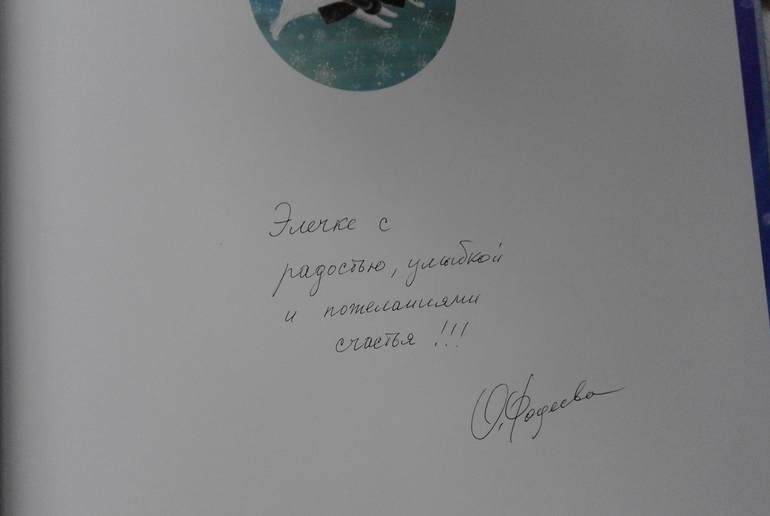 Элечке с
радостью, улыбкой
и пожеланиями
счастья !!!
О. Фадеева